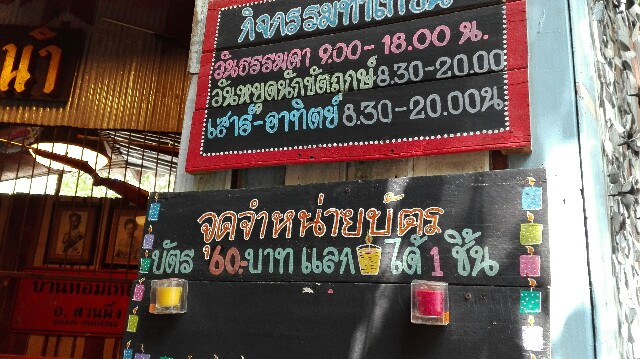 กิจกรรมทำเทียน
วันธรรมดา 9.00 - 18.00 น.
วันหยุดนักขัตฤกษ์ 8.30 - 20.00
เสาร์-อาทิตย์ 8.30 - 20.00 น
จุดจำหน่ายบัตร
บัตร 60.- บาท แลก ได้ 1 ชิ้น
บ้านหอมเทียน
อ. สวนผึ้ง
SUAN PHUENG